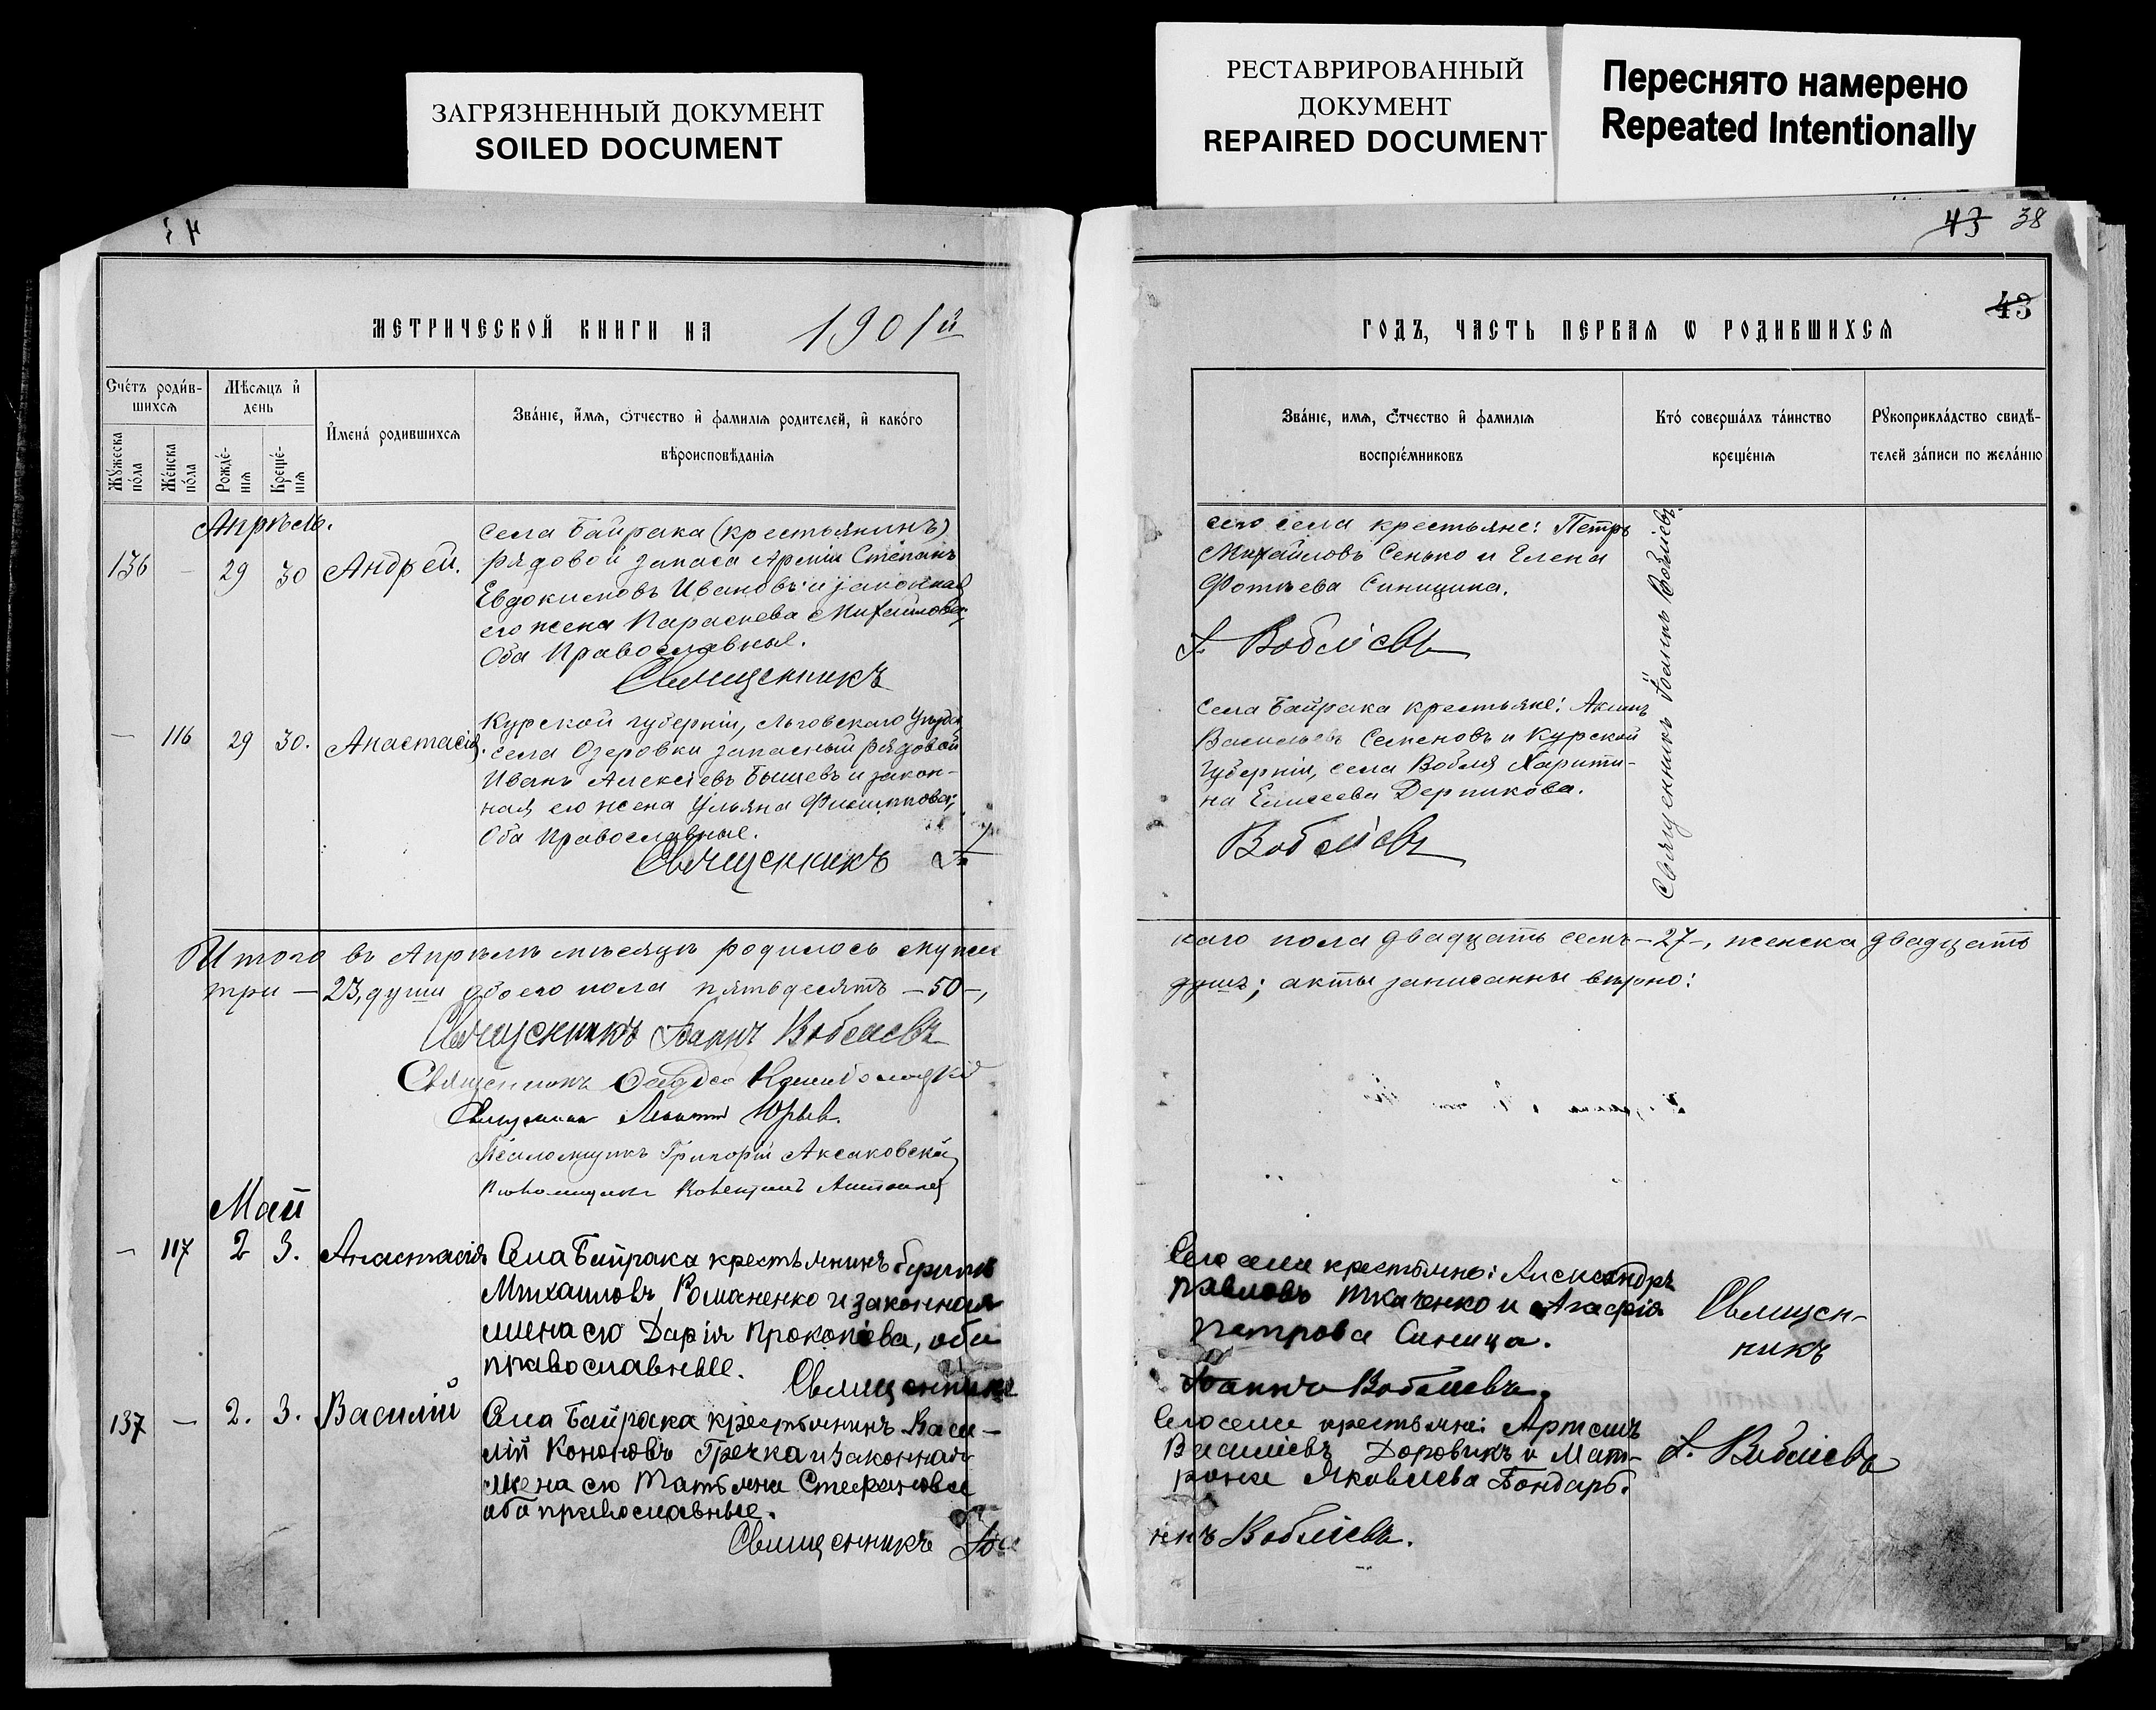 ЗАГРЯЗНЕННЫЙ ДОКУМЕНТ
SOILED DOCUMENT
РЕСТАВРИРОВАННЫЙ
ДОКУМЕНТ
REPAIRED DOCUMENT
Переснято намерено
Repeated Intentionally
43 38
43
МЕТРИЧЕСКОЙ КНИГИ НА 1901й
Счетъ родив-
шихся
Мѣсяцъ и
день
Мужеска
пола
Женска
пола
Рожде-
нія
Креще-
нія
Имена родившихся
Званіе, имя, отчество и фамилія родителей, и какого
вѣроисповѣданія
Апрѣль.
136 — 29 30 Андрей.
села Байрака (крестьянинъ)
рядовой запаса Арміи Стефанъ
Евдокимовъ Ивановъ и законная
его жена Параскева Михайлова;
Оба Православные.
Священникъ
— 116 29 30. Анастасія.
Курской губерніи, Льговскаго Уѣзда
села Озеровки запасный рядовой
Иванъ Алексіевъ Бышевъ и закон-
ная его жена Ульяна Филиппова;
Оба Православные.
Священникъ
Итого въ Апрѣлѣ мѣсяцѣ родилось мужес
три — 23, души обоего пола пятьдесятъ — 50 —,
Священникъ Іоаннъ Воблиевъ
Священникъ
Священникъ Юрьев.
Псаломщикъ Григорій Аксаковскій
Псаломщикъ
Май
— 117 2 3. Анастасія
Села Байрака крестьянинъ
Михаиловъ Романенко и законная
жена его Дарія Прокопіева, оба
православные.
Священникъ
137 — 2. 3. Василій
Села Байрака крестьянинъ Васи-
лій Кононовъ Гречка и законная
жена его Татьяна Стефановна
оба православные.
Священникъ Іоа
ГОДЪ, ЧАСТЬ ПЕРВАЯ Ѡ РОДИВШИХСЯ
Званіе, имя, Отчество и фамилія
воспріемниковъ
Кто совершалъ таинство
крещенія
Рукоприкладство свидѣ-
телей записи по желанію
сего села крестьяне: Петръ
Михайловъ Сенько и Елена
Фотіева Синицина.
І. Вобліевъ
села Байрака крестьяне: Акимъ
Васильевъ Семеновъ и Курской
Губерніи, села Вобля Харити-
на Елисеева Дерникова.
Вобліевъ
Священникъ Іоаннъ Вобліевъ
каго пола двадцать семь — 27 —, женска двадцать
душъ; акты записанны вѣрно:
Сего села крестьяне: Александръ
Павловъ Ткаченко и Агафія
Петрова Синица.
Іоаннъ Вобліевъ.
Священ-
никъ
Сего села крестьяне: Артемъ
Василіевъ Доровикъ и Мат-
рона Яковлева Бондарь.
ннъ Вобліевъ.
І. Вобліевъ